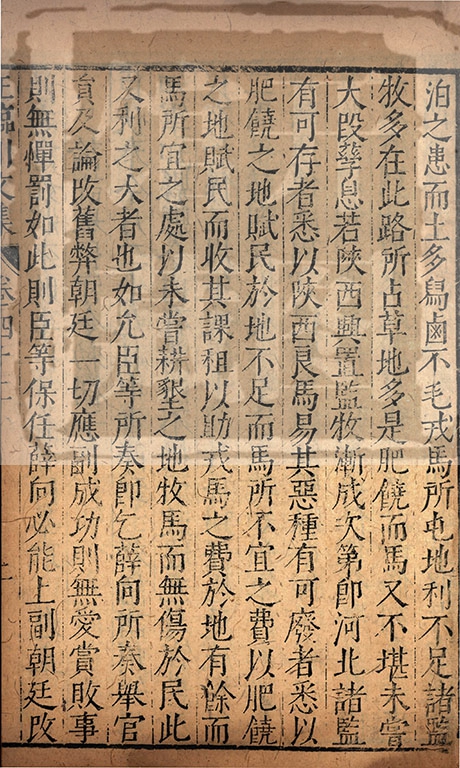 泊之患而土多舄鹵不毛戎馬所屯地利不足諸監
牧多在此路所占草地多是肥饒而馬又不堪未嘗
大段孳息若陝西興置監牧漸成次第即河北諸監
有可存者悉以陝西良馬易其惡種有可廢者悉以
肥饒之地賦民於地不足而馬所不宜之費以肥饒
之地賦民而收其課租以助戎馬之費於地有餘而
馬所宜之處以未嘗耕墾之地牧馬而無傷於民此
又利之大者也如允臣等所奏即乞薛向所奏舉官
員及論改舊弊朝廷一切應副成功則無愛賞敗事
則無憚罰如此則臣等保任薛向必能上副朝廷改
王臨川文集 卷四十二